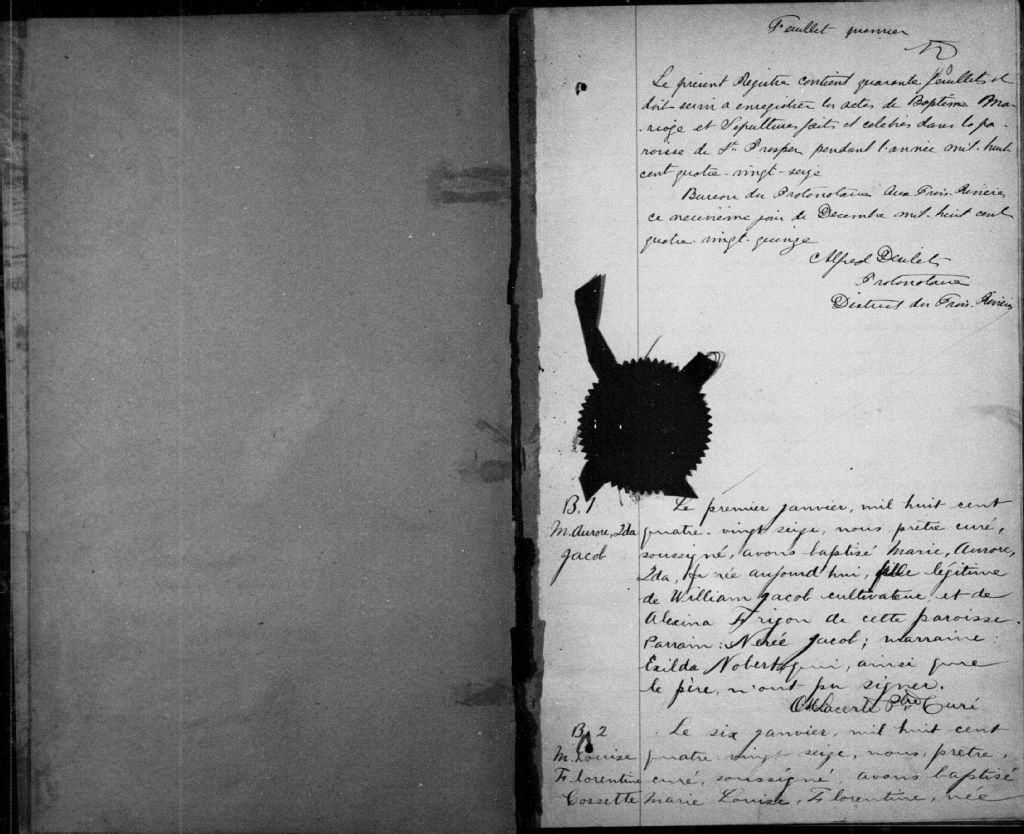 Feuillet premier
Le présent Registre contient quarante feuillets et
doit servir a enregistrer les actes de Baptême Ma-
-riage et Sépultures faits et célébrés dans la pa-
roisse de St. Prosper pendant l'année mil-huit
cent quatre-vingt-seize
Bureau du Protonotaire Aux Trois-Rivières
ce neuvième jour de Décembre mil-huit cent
quatre-vingt-quinze
Alfred
Protonotaire
District des Trois-Rivières
B. 1
M. Aurore, Ida
Jacob
Le premier janvier, mil huit cent
quatre-vingt seize, nous prêtre curé,
soussigné, avons baptisé Marie, Aurore,
Ida, née aujourd'hui, fille légitime
de William Jacob cultivateur, et de
Alexina Frigon de cette paroisse.
Parrain: Nerée Jacob; marraine:
Exilda Nobert qui, ainsi que
le père, n'ont pu signer.
Ptre Curé
B. 2
M. Louise
Florentine
Cossette
Le six janvier, mil huit cent
quatre-vingt seize, nous, prêtre,
curé, soussigné, avons baptisé
Marie Louise, Florentine, née